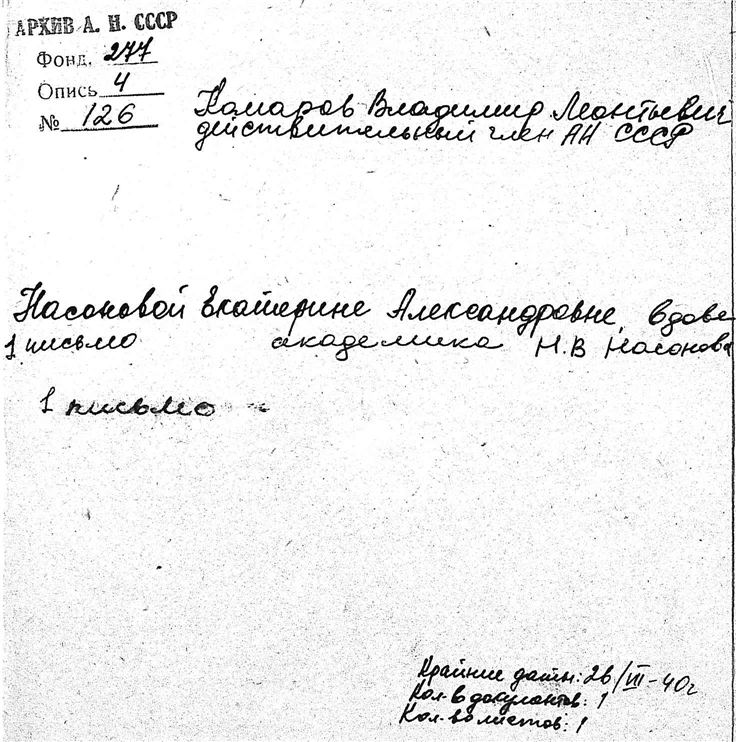 АРХИВ А. Н. СССР
Фонд. 277
Опись 4
№ 126
Комаров Владимир Леонтьевич
действительный член АН СССР
Насоновой Екатерине Александровне, вдове
1 письмо академика Н.В Насонова
1 письмо
Крайние даты: 26/III-40г
Кол-в документов: 1
Кол-во листов: 1